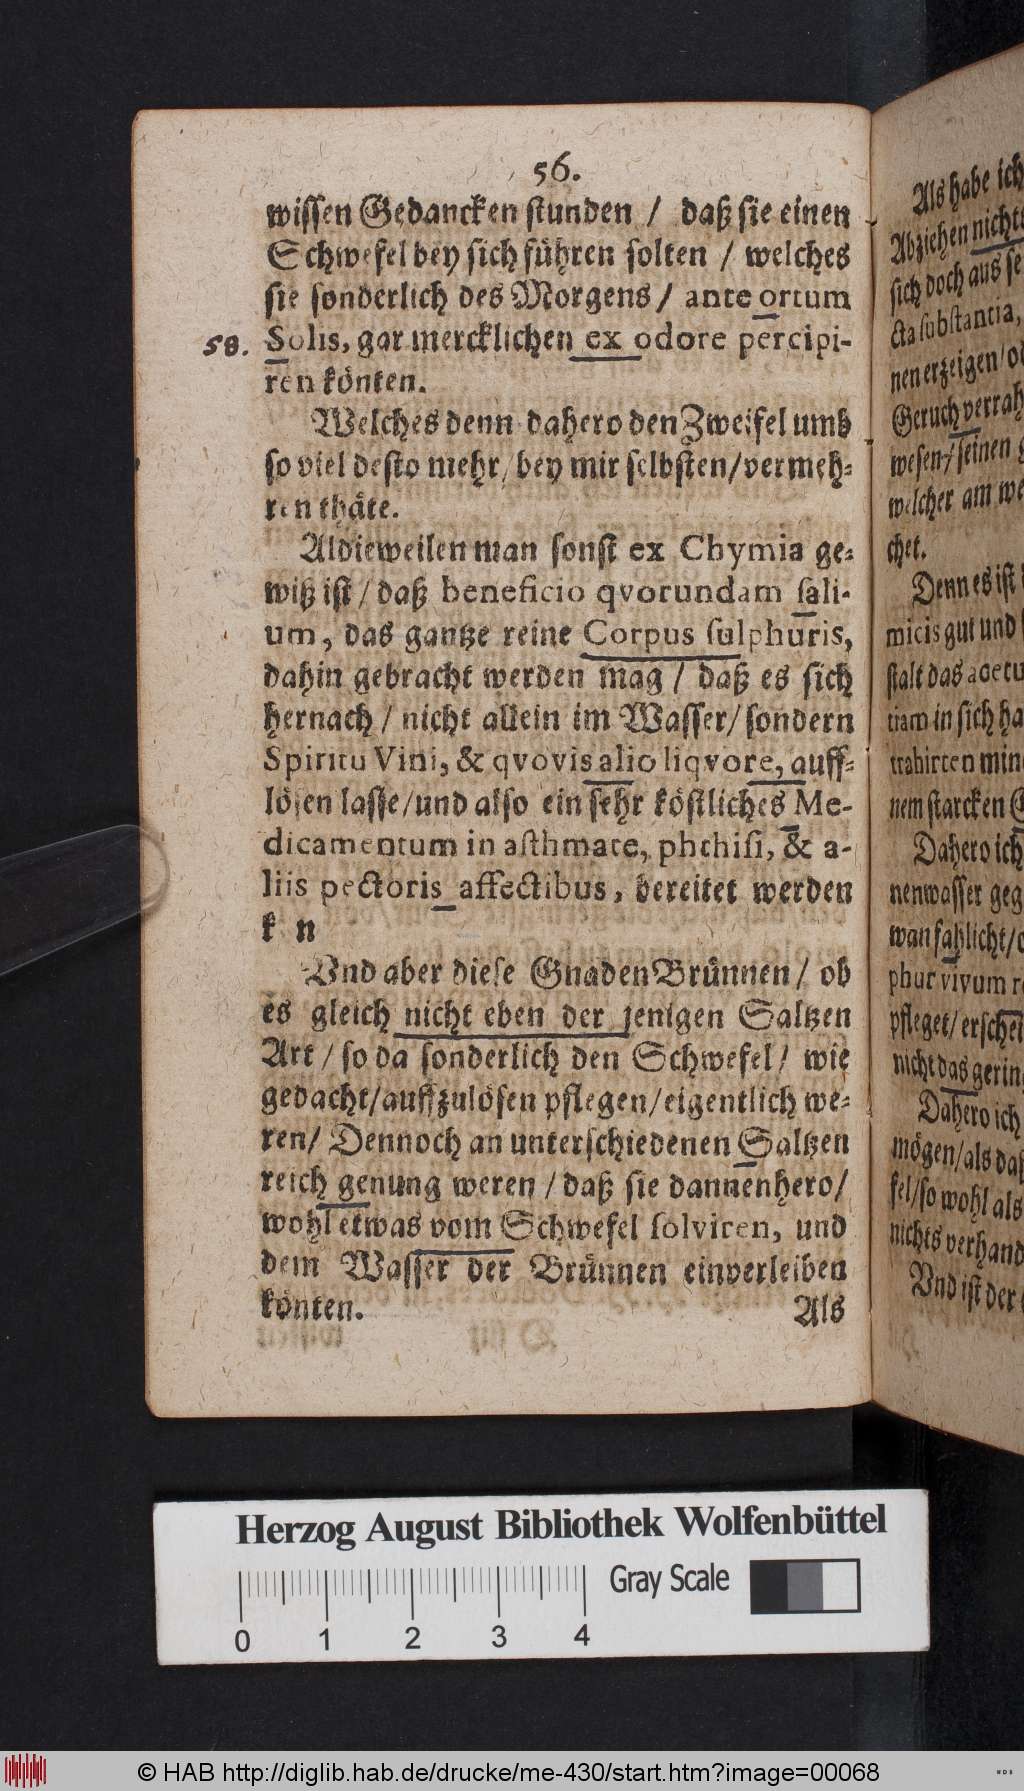 56.
wissen Gedancken stunden / daß sie einen
Schwefel bey sich führen solten / welches
sie sonderlich des Morgens / ante ortum
58. Solis, gar mercklichen ex odore percipi-
ren könten.
Welches denn dahero den Zweifel umb
so viel desto mehr / bey mir selbsten / vermeh-
ren thäte.
Aldieweilen man sonst ex Chymia ge-
wiß ist / daß beneficio qvorundam sali-
um, das gantze reine Corpus sulphuris,
dahin gebracht werden mag / daß es sich
hernach / nicht allein im Wasser / sondern
Spiritu Vini, & qvovis alio liqvore, auff-
lösen lasse / und also ein sehr köstliches Me-
dicamentum in asthmate, phthisi, & a-
liis pectoris affectibus, bereitet werden
k n
Vnd aber diese Gnaden Brünnen / ob
es gleich nicht eben der jenigen Saltzen
Art / so da sonderlich den Schwefel / wie
gedacht / auffzulösen pflegen / eigentlich we-
ren / Dennoch an unterschiedenen Saltzen
reich genung weren / daß sie dannenhero /
wohl etwas vom Schwefel solviren, und
dem Wasser der Brünnen einverleiben
könten. Als
Als habe ich
Abziehen nichts
sich doch aus se
cta substantia,
nen erzeigen / od
Geruch verrah
wesen / seinen g
welcher am we
chet.
Denn es ist
micis gut und
stalt das acetu
tiam in sich ha
trahirten min
nem starcken
Dahero ich
nenwasser geg
wan fahlicht /
phur vivum r
pfleget / erschei
nicht das gerin
Dahero ich
mögen / als daß
fel / so wohl als
nichts verhand
Vnd ist der
Herzog August Bibliothek Wolfenbüttel
Gray Scale
0 1 2 3 4
© HAB http://diglib.hab.de/drucke/me-430/start.htm?image=00068